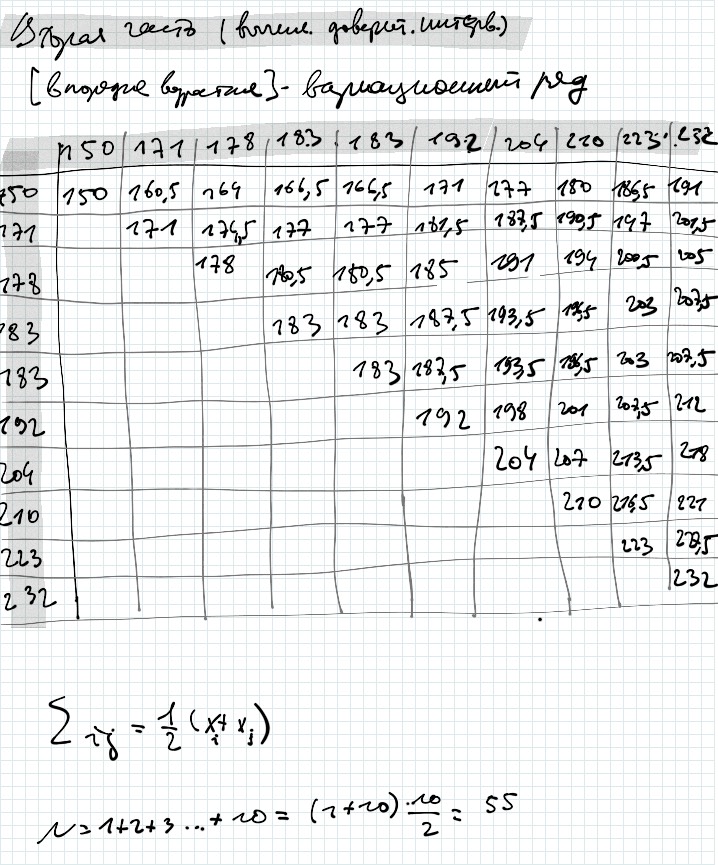 Вторая часть (вычисл. доверит. интерв.)
[в порядке возрастания] - вариационный ряд
150 171 178 183 183 192 204 210 223 232
150 150 160,5 164 166,5 166,5 171 177 180 186,5 191
171 171 174,5 177 177 181,5 187,5 190,5 197 201,5
178 178 180,5 180,5 185 191 194 200,5 205
183 183 183 187,5 193,5 196,5 203 207,5
183 183 187,5 193,5 196,5 203 207,5
192 192 198 201 207,5 212
204 204 207 213,5 218
210 210 216,5 221
223 223 227,5
232 232
Σ ij = 1/2 (xi + xj)
N = 1+2+3 ... + 10 = (1+10) · 10/2 = 55